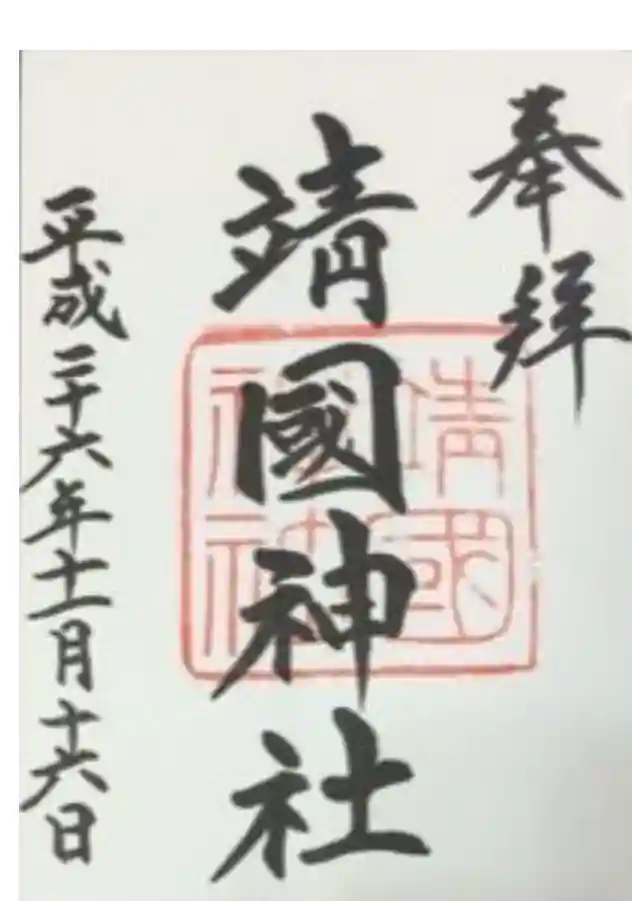 奉拝
靖國神社
平成二十六年十一月十六日
靖國
神社